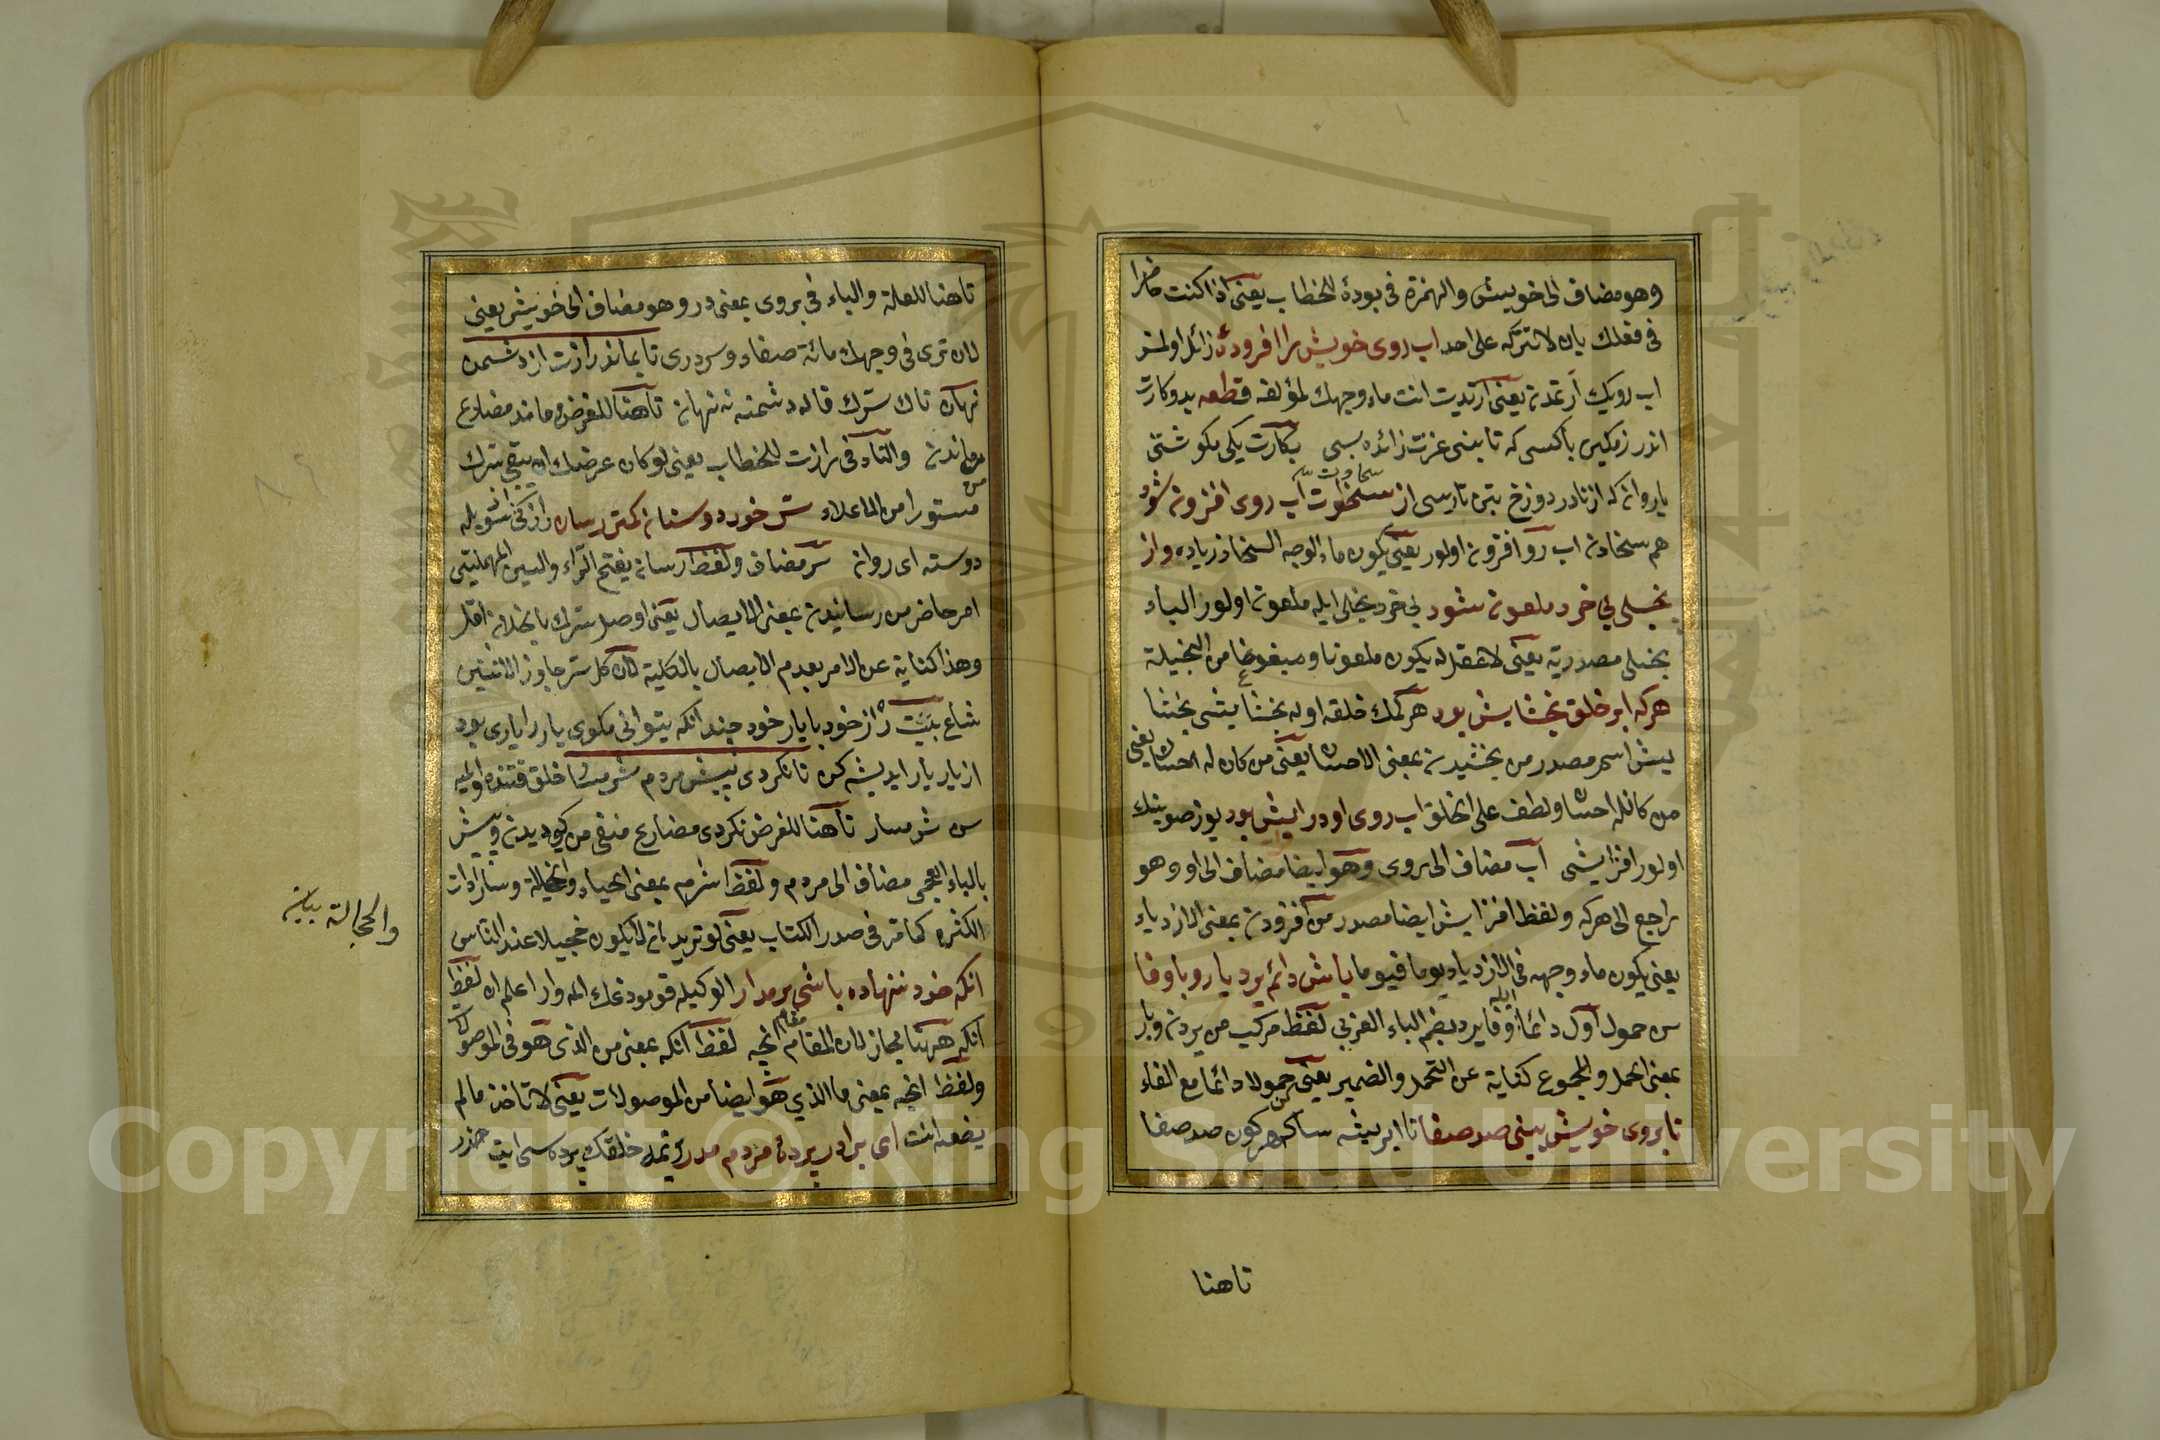 وهو مضاف الى خويش والهمزة فى بودۀ للخطاب يعنى اذا كنت حاضرا
فى فعلك بان لا تتركه على احد اب روى خويش را افزودۀ زائل اولمز
اب رويك
يعنى ارتديت انت ماء وجهك لمؤلفه قطعه
با كسى كه تا بينى عزت زائده بسى
يا روانه كه از نار دوزخ بترس تا رسى از سخاوت آب روى افزون شود
سخاوت
هم سخادن اب رو افزون اولور يعنى يكون ماء الوجه السخا زياده واز
بخيلى بى خرد ملعون شود بى خرد بخل ايله ملعون اولور الباء
بخيلى مصدرية يعنى لا عقل له يكون ملعونا ومبغوضا من البخيلة
هركه ابر خلق بخشايش بود هر كمك خلقه اوله
يش اسم مصدر من بخشيدن بمعنى الاحسان يعنى من كان له احسان يعنى
من كان له احسان ولطف على الخلق اب روى او در افزايش بود يوز صوينك
اولور افزايشى آب مضاف الى روى وهو ايضا مضاف الى او وهو
راجع الى هركه ولفظ افزايش ايضا مصدر من افزودن بمعنى الازدياد
يعنى يكون ماء وجهه فى الازدياد يوما فيوما باش دائم برد بار و با وفا
س حمول اول دائما وفا ايله بردبار بضم الباء العربى لفظ مركب من بردن وبار
بمعنى الحمل والمجموع كناية عن التحمل والضمير يعنى كن حمولا دائما مع الوفاء
تا بروى خويش بينى صد صفا تا
تاهنا
تاهنا للعلة والباء فى بروى بمعنى در وهو مضاف الى خويش يعنى
لان ترى فى وجهك مائة صفاء وسر درى تا بماند رازت از دشمن
نهان تاك سرك قاله دشمندن نهان تاهنا للغرض وماند مضارع
من ماندن والتاء فى رازت للخطاب يعنى لو كان غرضك ان يبقى سرك
مستورا من الاعداء سر خود با دوستان كمتر رسان
دوسته اى روان سر مضاف ولفظ رسان بفتح الراء والسين المهملتين
امر حاضر من رسانيدن بمعنى الايصال يعنى اوصل سرك باخلان اقل
وهذا كناية عن الامر بعدم الايصال بالكلية لان كل سر جاوز الاثنين
شاع بيت راز خود با يار خود چندانكه بتوانى مكوى يار را يارى بود
از يار يار انديشه كن تا نكردى پيش مردم شرمسار خلق قتنده اولميه
س شرمسار تاهنا للغرض نكردى مضارع منفى من كرديدن وپيش
بالباء العجمى مضاف الى مردم ولفظ شرم بمعنى الحياء والخجالة وسار ادات
والخجالة بيان
الكثرة كما مر فى صدر الكتاب يعنى لو تريد ان لا يكون خجيلا عند الناس
انكه خود ننهاده باشى بر مدار الوكيله قومودغك المه وار اعلم ان لفظ
انكه ههنا مجاز لان المقام مقام انچه لفظ انكه بمعنى من الذى هو فى الموصولات
ولفظ انچه بمعنى ما الذي هو ايضا من الموصولات يعنى لا تاخذ ما لم
يضعه انت اى برادر پردۀ مردم مدر اتمه خلقك پرده سى ايت حذر
Copyright © King Saud University